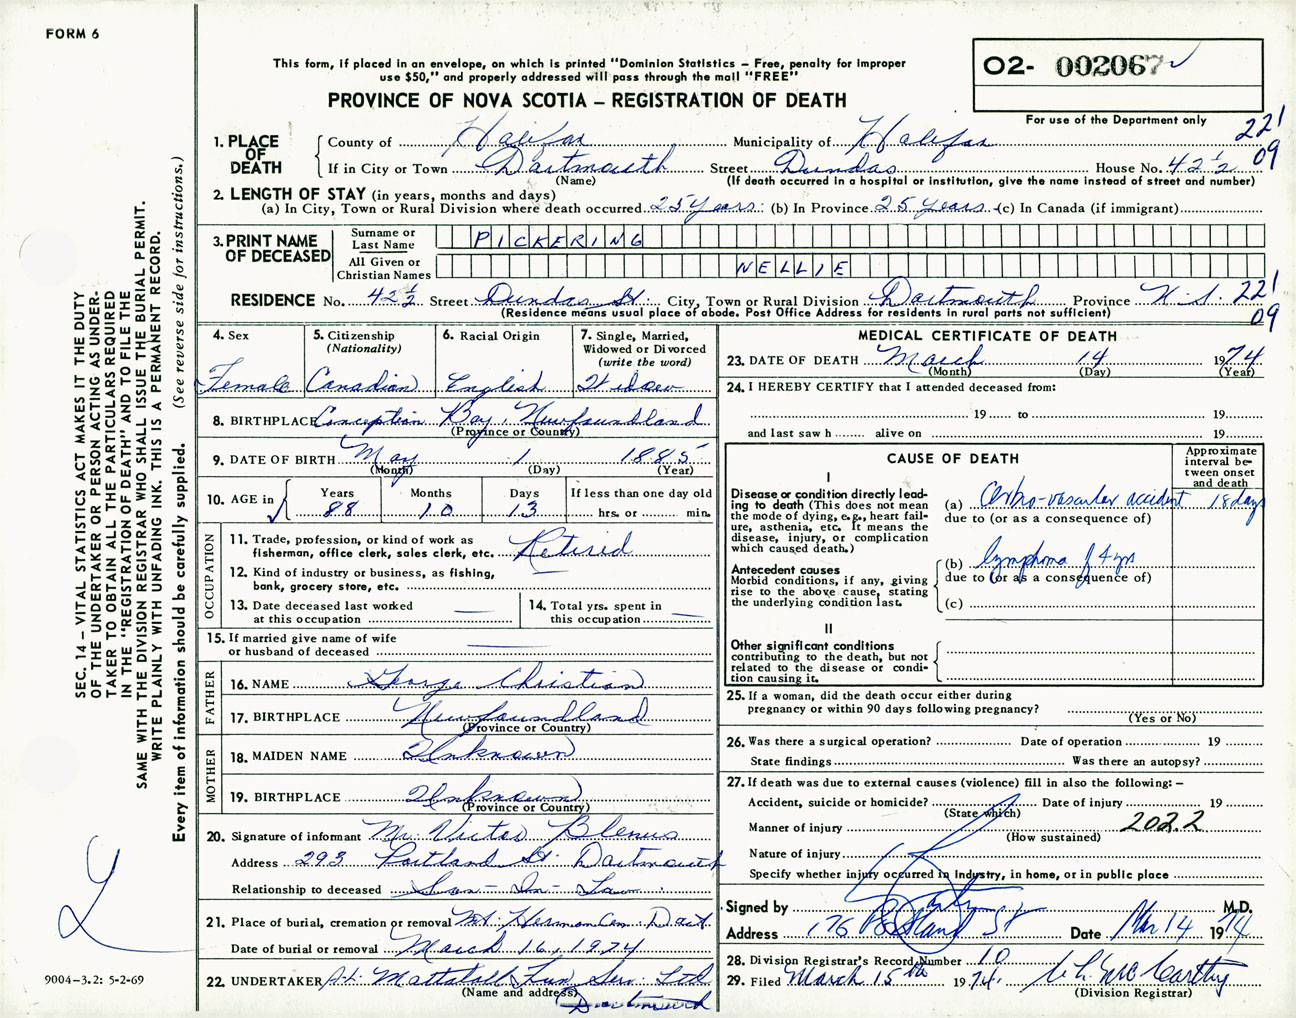 FORM 6
This form, if placed in an envelope, on which is printed "Dominion Statistics – Free, penalty for improper
use $50," and properly addressed will pass through the mail "FREE"
O2- 002067
PROVINCE OF NOVA SCOTIA – REGISTRATION OF DEATH
For use of the Department only
221
09
1. PLACE OF DEATH County of Halifax Municipality of Halifax
If in City or Town Dartmouth Street Dundas House No. 42 ½
(Name) (If death occurred in a hospital or institution, give the name instead of street and number)
2. LENGTH OF STAY (in years, months and days)
(a) In City, Town or Rural Division where death occurred 25 years (b) In Province 25 years (c) In Canada (if immigrant)
3. PRINT NAME OF DECEASED Surname or Last Name PICKERING
All Given or Christian Names NELLIE
RESIDENCE No. 42 ½ Street Dundas St. City, Town or Rural Division Dartmouth Province N.S. 221
09
(Residence means usual place of abode. Post Office Address for residents in rural parts not sufficient)
4. Sex
Female
5. Citizenship
(Nationality)
Canadian
6. Racial Origin
English
7. Single, Married,
Widowed or Divorced
(write the word)
Widow
8. BIRTHPLACE Conception Bay, Newfoundland
(Province or Country)
9. DATE OF BIRTH May 1 1885
(Month) (Day) (Year)
10. AGE in Years Months Days If less than one day old
88 10 13 hrs. or min.
OCCUPATION
11. Trade, profession, or kind of work as
fisherman, office clerk, sales clerk, etc. Retired
12. Kind of industry or business, as fishing,
bank, grocery store, etc.
13. Date deceased last worked
at this occupation
14. Total yrs. spent in
this occupation
15. If married give name of wife
or husband of deceased
FATHER
16. NAME George Christian
17. BIRTHPLACE Newfoundland
(Province or Country)
MOTHER
18. MAIDEN NAME Unknown
19. BIRTHPLACE Unknown
(Province or Country)
20. Signature of informant Mr. Victor Blenus
Address 293 Portland St. Dartmouth
Relationship to deceased Son-In-Law
21. Place of burial, cremation or removal Mt. Hermon Cem. Dart.
Date of burial or removal March 16, 1974
22. UNDERTAKER Mattatall Fun. Ser. Ltd
(Name and address) Dartmouth
MEDICAL CERTIFICATE OF DEATH
23. DATE OF DEATH March 14 1974
(Month) (Day) (Year)
24. I HEREBY CERTIFY that I attended deceased from:
19 to 19
and last saw h alive on 19
CAUSE OF DEATH
Approximate
interval be-
tween onset
and death
I
Disease or condition directly lead-
ing to death (This does not mean
the mode of dying, e.g., heart fail-
ure, asthenia, etc. It means the
disease, injury, or complication
which caused death.)
(a) Cerbro-vascular accident 18 days
due to (or as a consequence of)
Antecedent causes
Morbid conditions, if any, giving
rise to the above cause, stating
the underlying condition last.
(b) lymphoma 4 yrs
due to (or as a consequence of)
(c)
II
Other significant conditions
contributing to the death, but not
related to the disease or condi-
tion causing it.
25. If a woman, did the death occur either during
pregnancy or within 90 days following pregnancy?
(Yes or No)
26. Was there a surgical operation? Date of operation 19
State findings Was there an autopsy?
27. If death was due to external causes (violence) fill in also the following: –
Accident, suicide or homicide? Date of injury 19
(State which)
Manner of injury 202.2
(How sustained)
Nature of injury
Specify whether injury occurred in Industry, in home, or in public place
Signed by M.D.
Address 176 Portland St Date Mar 14 1974
28. Division Registrar's Record Number 10
29. Filed March 15th 1974. McCarthy
(Division Registrar)
SEC. 14 – VITAL STATISTICS ACT MAKES IT THE DUTY
OF THE UNDERTAKER OR PERSON ACTING AS UNDER-
TAKER TO OBTAIN ALL THE PARTICULARS REQUIRED
IN THE "REGISTRATION OF DEATH" AND TO FILE THE
SAME WITH THE DIVISION REGISTRAR WHO SHALL ISSUE THE BURIAL PERMIT.
WRITE PLAINLY WITH UNFADING INK. THIS IS A PERMANENT RECORD.
Every item of information should be carefully supplied. (See reverse side for instructions.)
9004-3.2: 5-2-69